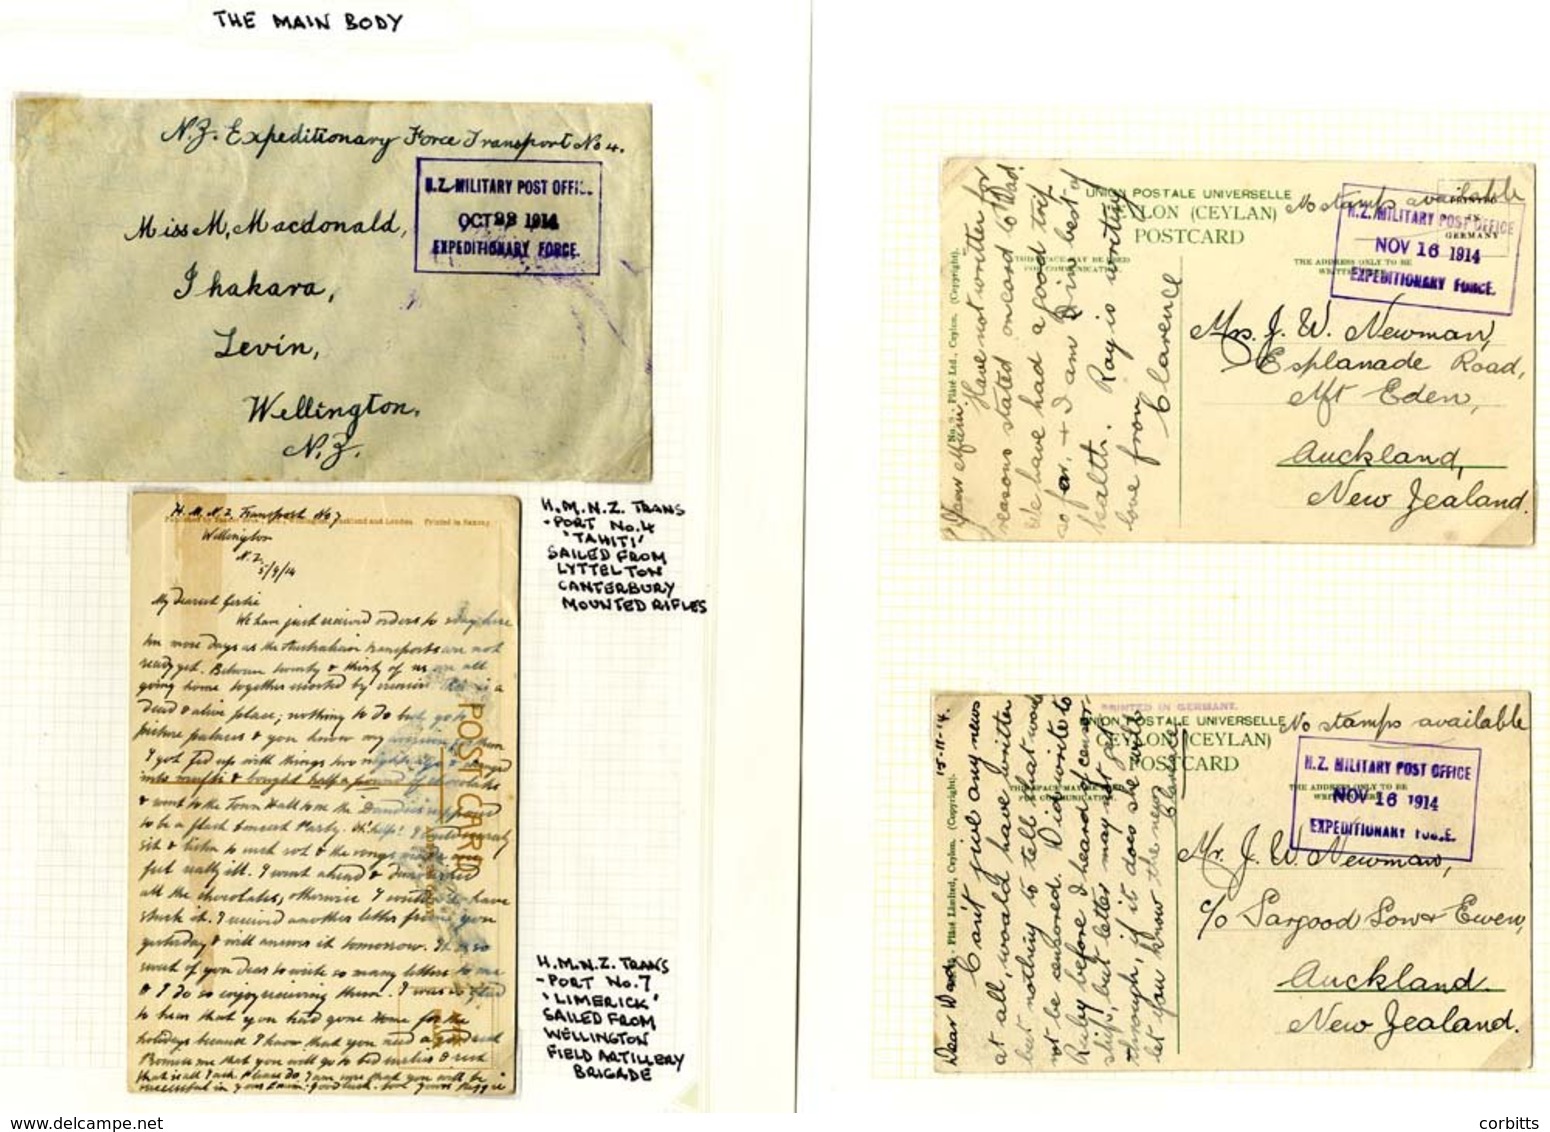 THE MAIN BODY
N.Z. Expeditionary Force Transport No 4.
N.Z. MILITARY POST OFFIC
OCT 28 1914
EXPEDITIONARY FORCE.
Miss M. Macdonald,
Ihakara,
Levin,
Wellington.
N.Z.
H.M.N.Z. Transport No 7
Auckland and London Printed in Saxony
Wellington
N.Z.
5/9/14
My dearest Gertie
We have just received orders to stay here
two more days as the Australian transports are not
ready yet. Between twenty & thirty of us are all
going home together
dead & alive place; nothing to do but go to
picture palaces & you know my
I got fed up with things two nights ago &
into mufti & bought half a pound of chocolates
& went to the Town Hall to see the
to be a flash Concert Party.
sit & listen to such rot & the songs made me
feel really ill. I went ahead &
all the chocolates, otherwise I wouldn't have
stuck it. I received another letter from you
yesterday & will answer it tomorrow. It is so
sweet of you dear to write so many letters to me
& I do so enjoy receiving them. I was so glad
to hear that you had gone home for the
holidays because I know that you need a good rest
Promise me that you will go to bed
that is all I ask. Please do. I am sure that you will be
successful in your Exam; good luck.
POST CARD
H.M.N.Z. TRANS
-PORT No.4
'TAHITI'
SAILED FROM
LYTTELTON
CANTERBURY
MOUNTED RIFLES
H.M.N.Z. TRANS
-PORT No.7
'LIMERICK'
SAILED FROM
WELLINGTON
FIELD ARTILLERY
BRIGADE
UNION POSTALE UNIVERSELLE
CEYLON (CEYLAN)
POSTCARD
No stamps available
PRINTED
IN
GERMANY
N.Z. MILITARY POST OFFICE
NOV 16 1914
EXPEDITIONARY FORCE.
THIS SPACE MAY BE USED
FOR COMMUNICATION.
THE ADDRESS ONLY TO BE
WRITTEN HERE.
Plâté Ltd., Ceylon. (Copyright).
Dear Mum.
Have not written for
reasons stated on card to Dad.
We have had a good trip
so far, + I am in best of
health. Ray is writing
love from
Clarence
Mrs. J. W. Newman,
Esplanade Road,
Mt Eden,
Auckland,
New Zealand.
PRINTED IN GERMANY.
UNION POSTALE UNIVERSELLE
CEYLON (CEYLAN)
POSTCARD
No stamps available
N.Z. MILITARY POST OFFICE
NOV 16 1914
EXPEDITIONARY FORCE.
THIS SPACE MAY BE USED
FOR COMMUNICATION.
THE ADDRESS ONLY TO BE
WRITTEN HERE.
Plâté Limited, Ceylon. (Copyright).
15-11-14.
Dear Dad,
Can't give any news
at all, would have written
but nothing to tell that would
not be censored. Did write to
Ruby before I heard of censor-
ship, but letter may not get
through, if it does she will
let you know the news
Clarence
Mr. J. W. Newman,
c/o Sargood Son & Ewen,
Auckland.
New Zealand.
www.delcampe.net
corbitts